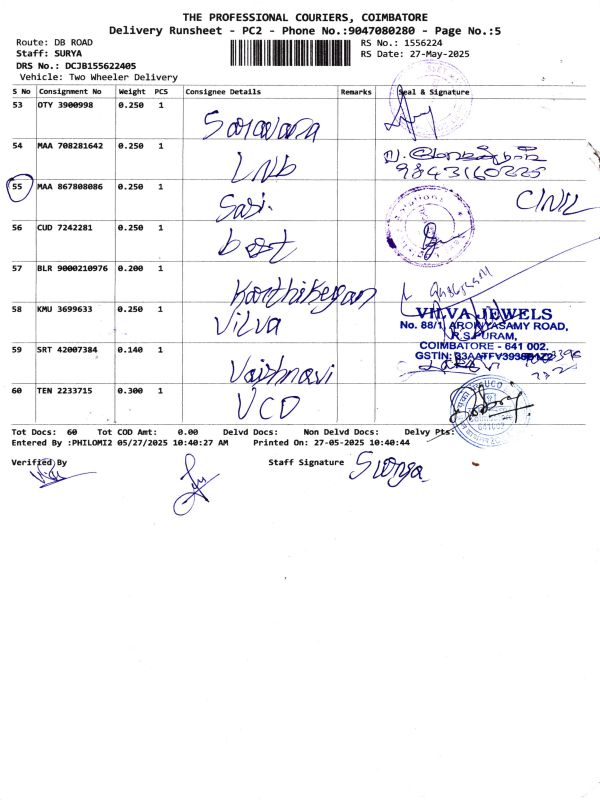 THE PROFESSIONAL COURIERS, COIMBATORE
Delivery Runsheet - PC2 - Phone No.:9047080280 - Page No.:5
Route: DB ROAD
RS No.: 1556224
Staff: SURYA
RS Date: 27-May-2025
DRS No.: DCJB155622405
Vehicle: Two Wheeler Delivery
S No Consignment No Weight PCS Consignee Details Remarks Seal & Signature
53 OTY 3900998 0.250 1
Saravana
54 MAA 708281642 0.250 1
LNb
9843160225
55 MAA 867808086 0.250 1
Sasi.
56 CUD 7242281 0.250 1
best
57 BLR 9000210976 0.200 1
Karthikeyan
58 KMU 3699633 0.250 1
Vilva
VILVA JEWELS
No. 88/1, AROKYASAMY ROAD,
R.S.PURAM,
COIMBATORE - 641 002.
59 SRT 42007384 0.140 1
Vaishnavi
60 TEN 2233715 0.300 1
VCD
Tot Docs: 60 Tot COD Amt: 0.00 Delvd Docs: Non Delvd Docs: Delvy Pts:
Entered By :PHILOMI2 05/27/2025 10:40:27 AM Printed On: 27-05-2025 10:40:44
Verified By
Staff Signature Surya